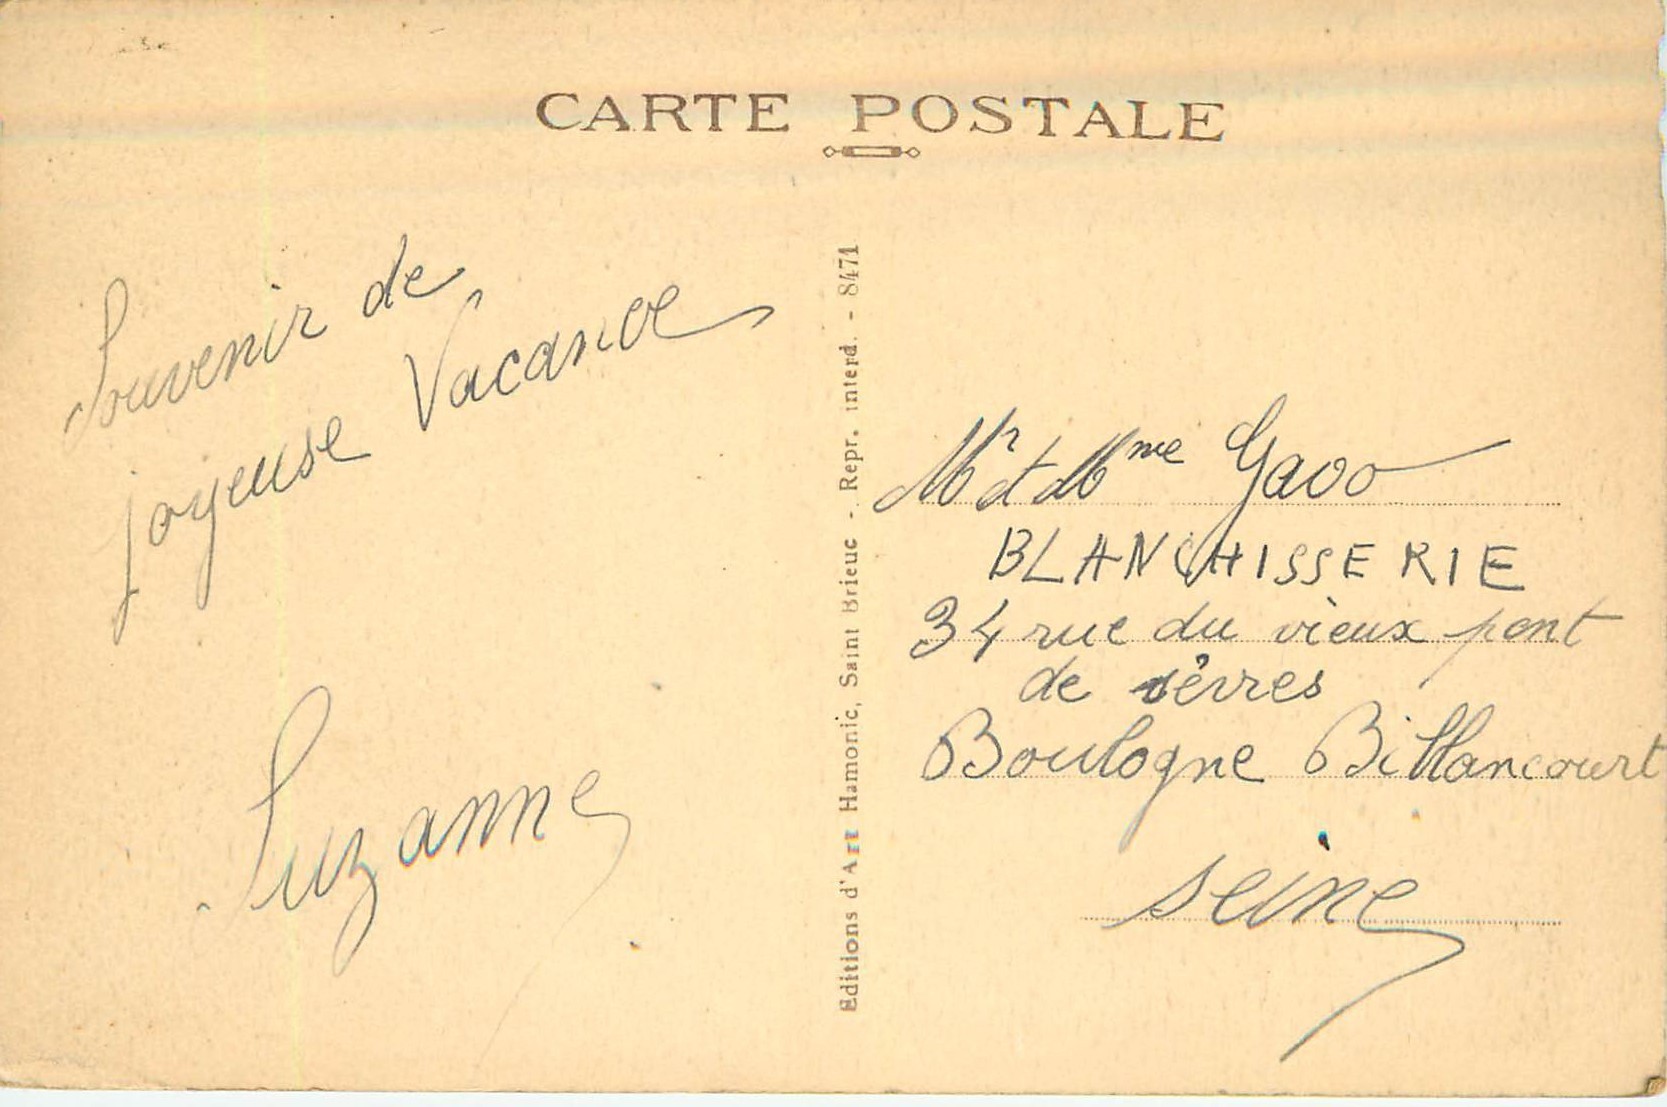 CARTE POSTALE
Souvenir de
joyeuse Vacance
Suzanne
Editions d'Art Hamonic, Saint Brieuc - Repr. interd. - 8471
Mr et Mme Gavo
BLANCHISSERIE
34 rue du vieux pont
de sèvres
Boulogne Billancourt
seine